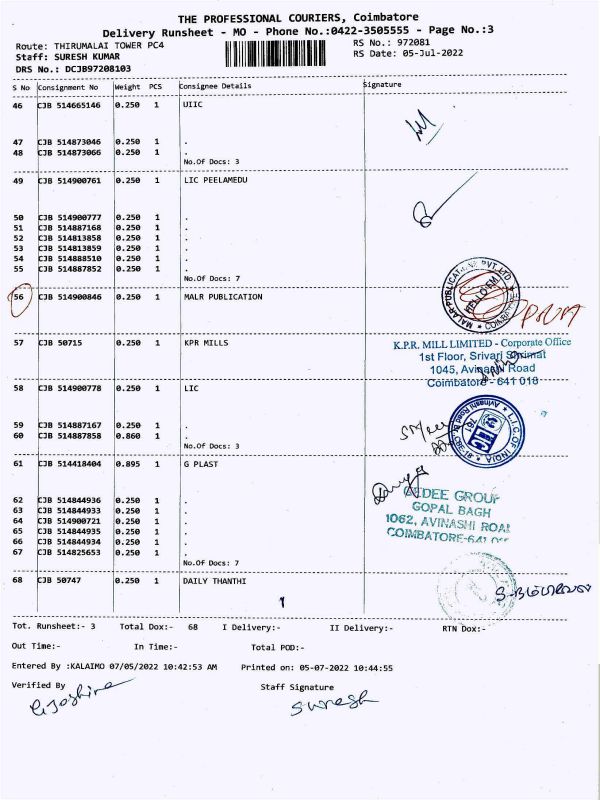 THE PROFESSIONAL COURIERS, Coimbatore
Delivery Runsheet - MO - Phone No.:0422-3505555 - Page No.:3
Route: THIRUMALAI TOWER PC4
RS No.: 972081
Staff: SURESH KUMAR
RS Date: 05-Jul-2022
DRS No.: DCJB97208103
S No Consignment No Weight PCS Consignee Details Signature
46 CJB 514665146 0.250 1 UIIC
47 CJB 514873046 0.250 1 .
48 CJB 514873066 0.250 1 .
No.Of Docs: 3
49 CJB 514900761 0.250 1 LIC PEELAMEDU
50 CJB 514900777 0.250 1 .
51 CJB 514887168 0.250 1 .
52 CJB 514813858 0.250 1 .
53 CJB 514813859 0.250 1 .
54 CJB 514888510 0.250 1 .
55 CJB 514887852 0.250 1 .
No.Of Docs: 7
56 CJB 514900846 0.250 1 MALR PUBLICATION
57 CJB 50715 0.250 1 KPR MILLS
K.P.R. MILL LIMITED - Corporate Office
1st Floor, Srivari Shrimat
1045, Avinashi Road
Coimbatore - 641 018
58 CJB 514900778 0.250 1 LIC
59 CJB 514887167 0.250 1 .
60 CJB 514887858 0.860 1 .
No.Of Docs: 3
L.I.C. OF INDIA
761
61 CJB 514418404 0.895 1 G PLAST
GEDEE GROUP
GOPAL BAGH
1062, AVINASHI ROAD
COIMBATORE-641
62 CJB 514844936 0.250 1 .
63 CJB 514844933 0.250 1 .
64 CJB 514900721 0.250 1 .
65 CJB 514844935 0.250 1 .
66 CJB 514844934 0.250 1 .
67 CJB 514825653 0.250 1 .
No.Of Docs: 7
68 CJB 50747 0.250 1 DAILY THANTHI
1
Tot. Runsheet:- 3 Total Dox:- 68 I Delivery:- II Delivery:- RTN Dox:-
Out Time:- In Time:- Total POD:-
Entered By :KALAIMO 07/05/2022 10:42:53 AM Printed on: 05-07-2022 10:44:55
Verified By Staff Signature
Suresh